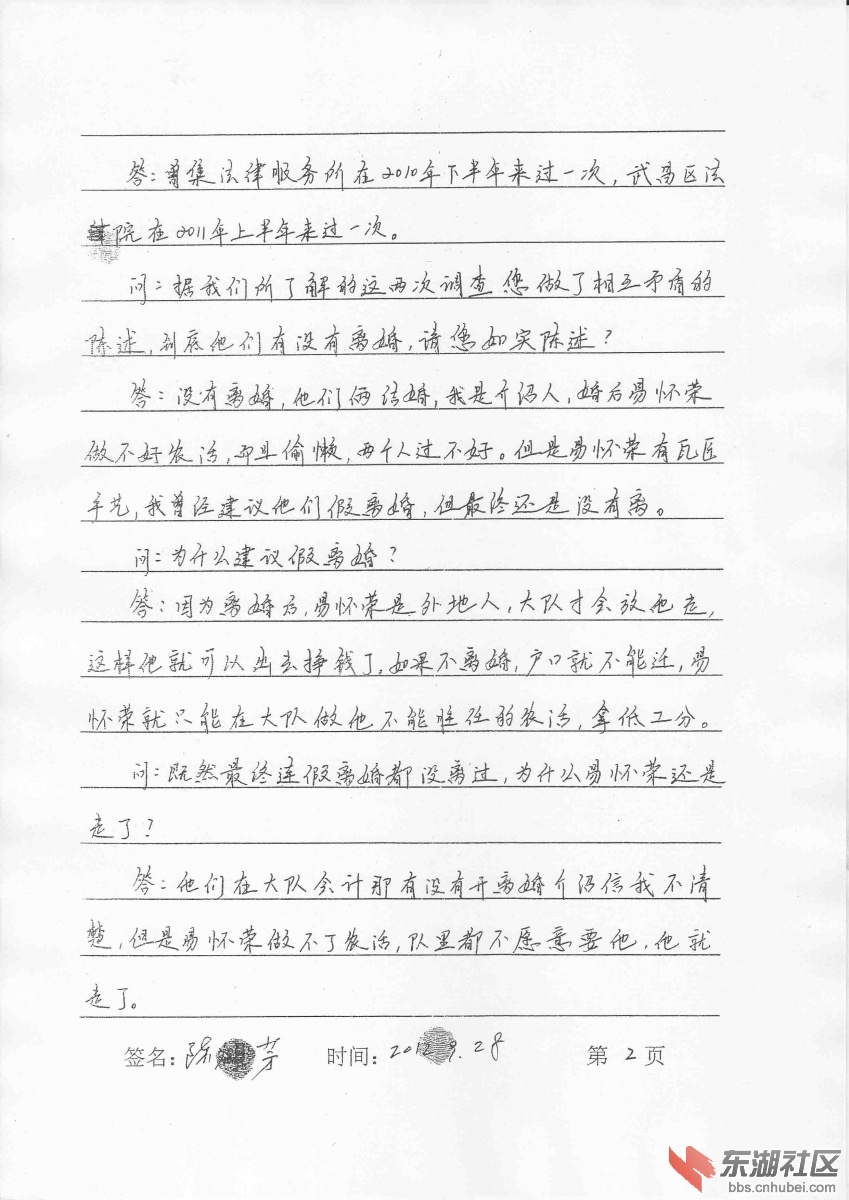 答：曾集法律服务所在2010年下半年来过一次，武昌区法
院在2011年上半年来过一次。
问：据我们所了解的这两次调查您做了相互矛盾的
陈述，到底他们有没有离婚，请您如实陈述？
答：没有离婚，他们俩结婚，我是介绍人，婚后易怀荣
做不好农活，而且偷懒，两个人过不好。但是易怀荣有瓦匠
手艺，我曾经建议他们假离婚，但最终还是没有离。
问：为什么建议假离婚？
答：因为离婚后，易怀荣是外地人，大队才会放他走，
这样他就可以出去挣钱了。如果不离婚，户口就不能迁，易
怀荣就只能在大队做他不能胜任的农活，拿低工分。
问：既然最终连假离婚都没离过，为什么易怀荣还是
走了？
答：他们在大队会计那有没有开离婚介绍信我不清
楚，但是易怀荣做不了农活，队里都不愿意要他，他就
走了。
签名：陈 芳 时间：2012.9.28 第 2 页
东湖社区
bbs.cnhubei.com